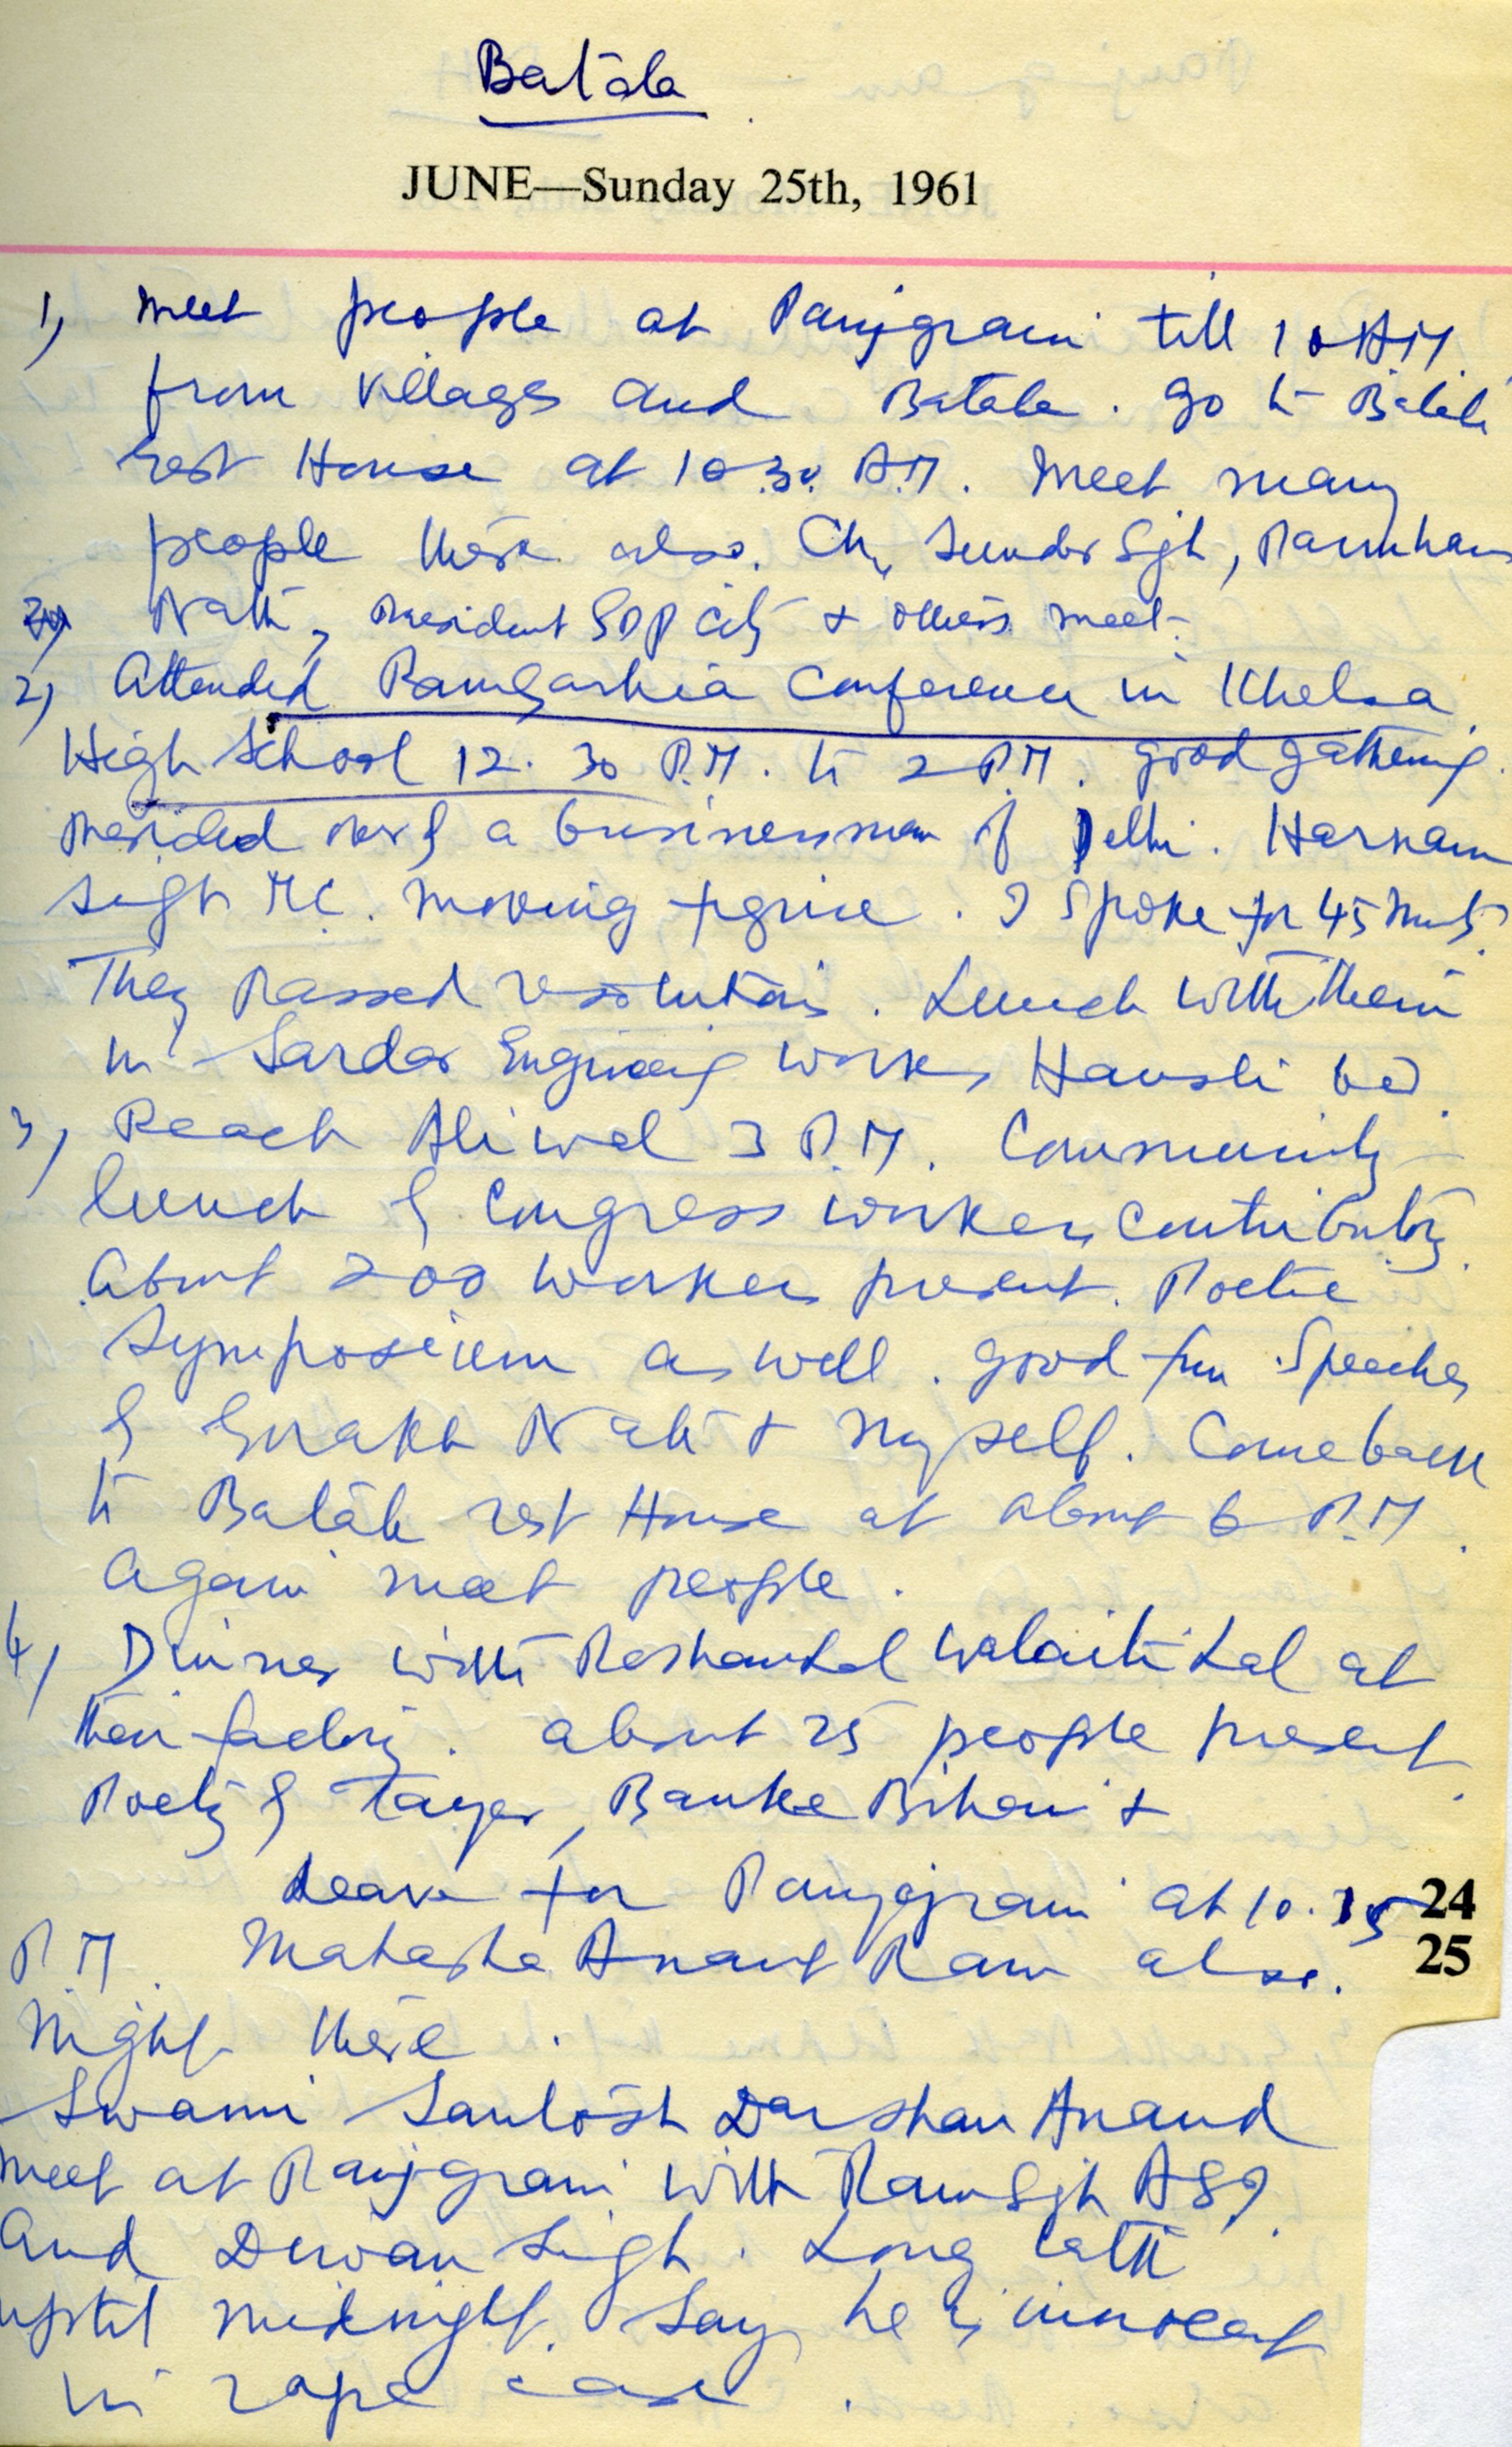 Batala
JUNE—Sunday 25th, 1961
1) Meet people at Panjgrain till 10 A.M.
from villages and Batala. Go to Batala
rest House at 10.30. A.M. Meet many
people there also. Ch, Sunder Sgh,
Nath, President City & others meet.
2) Attended Ramgarhia Conference in Khalsa
High School 12.30 P.M. to 2 P.M. good gathering.
Presided over by a businessman of Delhi. Harnam
Singh M.C. moving figure. I spoke for 45 Muts.
They Passed resolutions. Lunch with them
in Sardar Engineering works, Hansli
3) Reach Aliwal 3 P.M. Community
lunch by Congress workers, Contributory.
About 200 workers present. Poetic
Symposium as well. good fun. Speeches
by Gorakh Nath & myself. Come back
to Batala rest House at about 6 P.M.
Again meet people.
4) Dinner with Roshan Lal Walaiti Lal at
their factory. about 25 people present.
Poetry by Banke Bihari &
Leave for Panjgrain at 10.15
24
P.M. Mahasha Anant Ram also.
25
Night there.
Swami Santosh Darshan Anand
meet at Panjgrain with Ram Sgh ASI.
And Dewan Singh. Long talk
uptil midnight. Say he is innocent
in rape case.